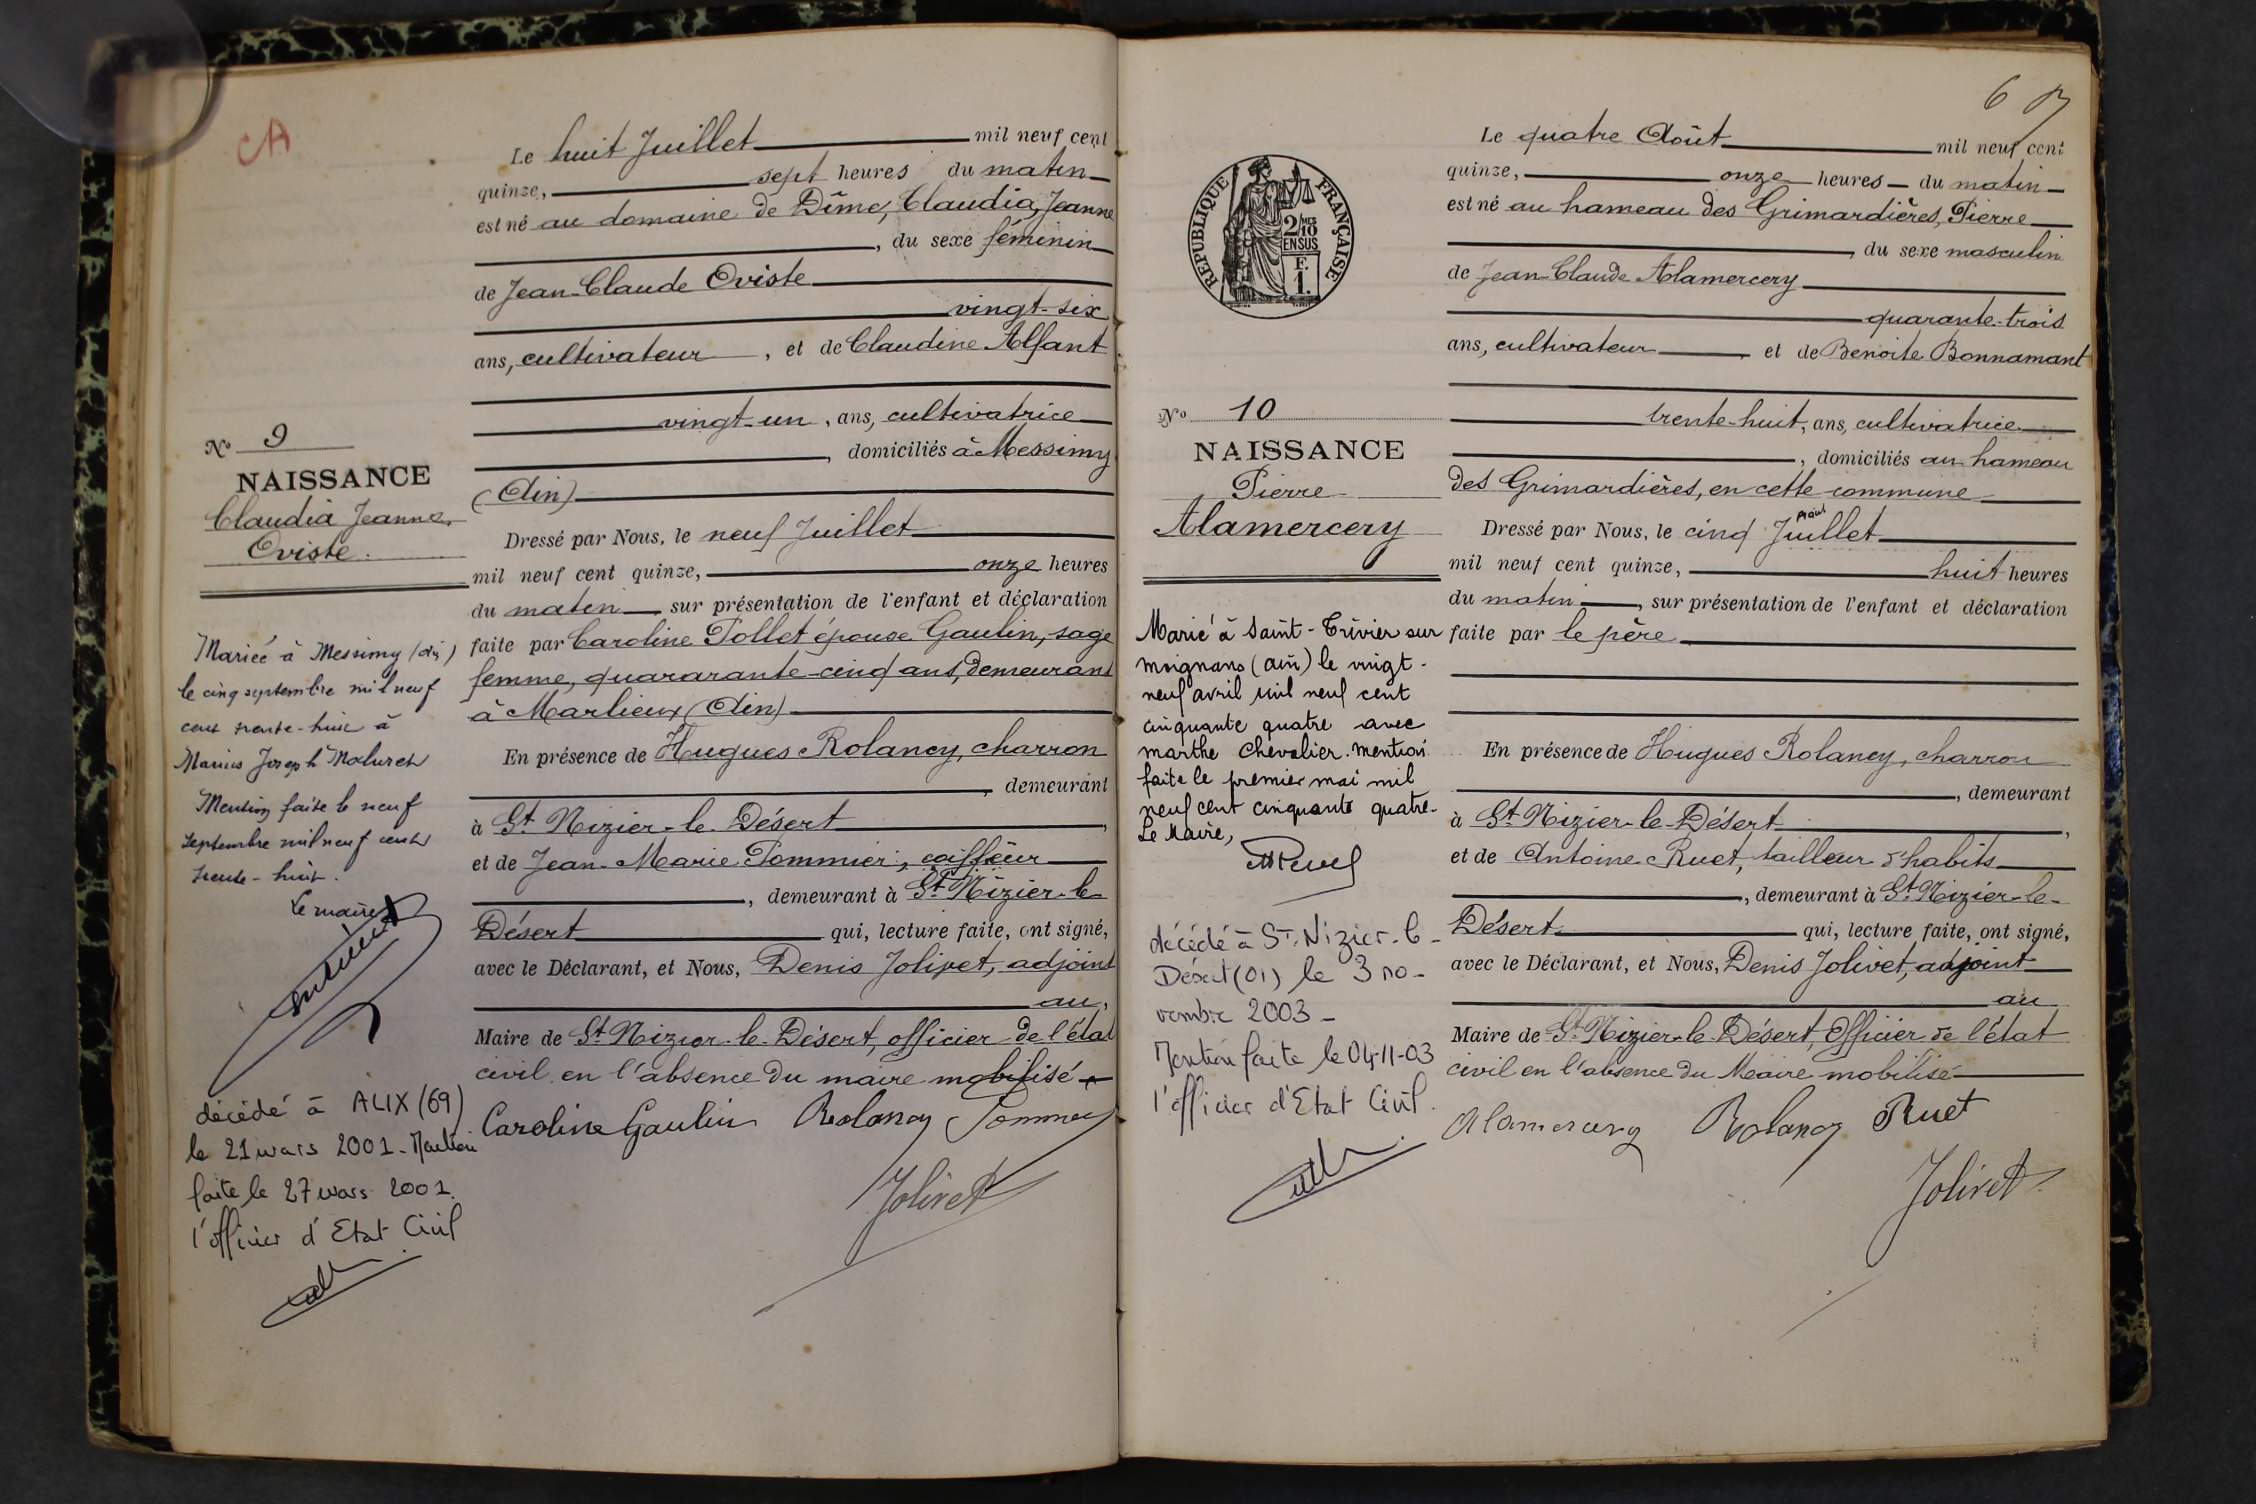 CA
Le huit Juillet mil neuf cent
quinze, sept heures du matin
est né au domaine de Dîme, Claudia, Jeanne
, du sexe féminin
de Jean-Claude Oviste
vingt-six
ans, cultivateur, et de Claudine Alfant
vingt-un, ans, cultivatrice
, domiciliés à Messimy
(Ain)
Dressé par Nous, le neuf Juillet
mil neuf cent quinze, onze heures
du matin sur présentation de l'enfant et déclaration
faite par Caroline Pollet épouse Gaulin, sage
femme, quararante-cinq ans, demeurant
à Marlieux (Ain)
En présence de Hugues Rolancy, charron
, demeurant
à St Nizier-le-Désert,
et de Jean-Marie Pommier, coiffeur
, demeurant à St Nizier-le-
Désert qui, lecture faite, ont signé,
avec le Déclarant, et Nous, Denis Jolivet, adjoint
au,
Maire de St Nizier-le-Désert, officier de l'état
civil en l'absence du maire mobilisé
Caroline Gaulin Rolancy Pommier
Jolivet
No 9
NAISSANCE
Claudia Jeanne
Oviste.
Mariée à Messimy (Ain)
le cinq septembre mil neuf
cent trente-huit à
Marius Joseph
Mention faite le neuf
septembre mil neuf cent
trente-huit.
Le maire
décédé à ALIX (69)
le 21 mars 2001. Mention
faite le 27 mars 2001.
l'officier d'Etat Civil
6
RÉPUBLIQUE FRANÇAISE
2/10 MES
EN SUS
F.
1.
Le quatre Août mil neuf cent
quinze, onze heures du matin
est né au hameau des Grimardières, Pierre
, du sexe masculin
de Jean-Claude Alamercery
quarante-trois
ans, cultivateur et de Benoite Bonnamant
trente-huit, ans, cultivatrice
, domiciliés au hameau
des Grimardières, en cette commune
Août
Dressé par Nous, le cinq Juillet
mil neuf cent quinze, huit heures
du matin, sur présentation de l'enfant et déclaration
faite par le père
En présence de Hugues Rolancy, charron
, demeurant
à St Nizier-le-Désert,
et de Antoine Ruet, tailleur d'habits
, demeurant à St Nizier-le-
Désert qui, lecture faite, ont signé,
avec le Déclarant, et Nous, Denis Jolivet, adjoint
au
Maire de St Nizier-le-Désert, Officier de l'état
civil en l'absence du Maire mobilisé
Alamercery Rolancy Ruet
Jolivet
No 10
NAISSANCE
Pierre
Alamercery
Marié à Saint-Trivier sur
moignans (ain) le vingt-
neuf avril mil neuf cent
cinquante quatre avec
marthe Chevalier. mention
faite le premier mai mil
neuf cent cinquante quatre.
Le Maire,
décédé à St-Nizier-le-
Désert (01) le 3 no-
vembre 2003-
Mention faite le 04-11-03
l'officier d'Etat Civil.